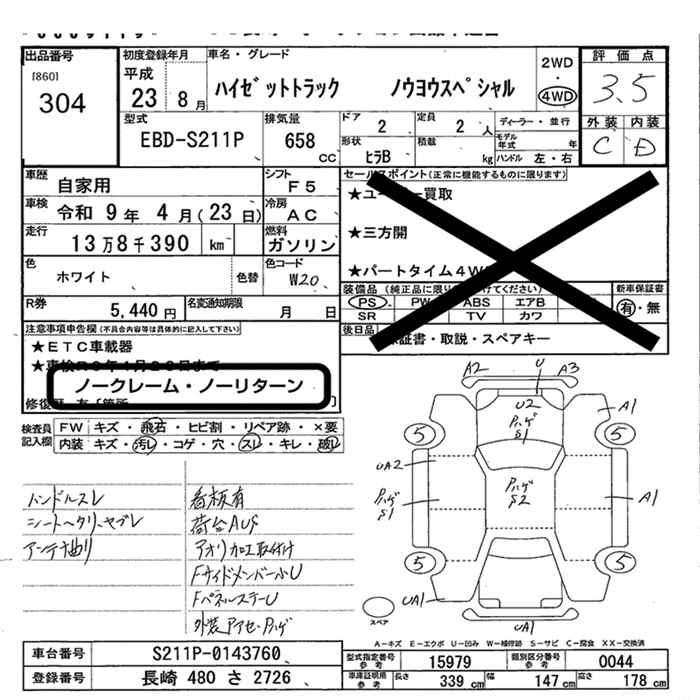 出品番号
[860]
304
初度登録年月
平成
23 8 月
車名・グレード
ハイゼットトラック ノウヨウスペシャル
2WD
・
4WD
評価点
3.5
外装 内装
C D
型式
EBD-S211P
排気量
658 CC
ドア
2
定員
2 人
ディーラー・並行
モデル年式 年
形状
ヒラB
積載
kg
ハンドル 左・右
車歴
自家用
シフト
F5
車検
令和 9年 4月(23日)
冷房
AC
走行
13万8千390 km
燃料
ガソリン
色
ホワイト
色替
色コード
W20
R券
5,440円
名変通知期限
月 日
セールスポイント(正常に機能するものに限ります)
★ユーザー買取
★三方開
★パートタイム4W
装備品(純正品に限り けてください)
PS PW ABS エアB
SR TV カワ
新車保証書
有・無
後日品
保証書・取説・スペアキー
注意事項申告欄(不具合内容等は具体的に記入して下さい)
★ETC車載器
ノークレーム・ノーリターン
検査員記入欄
FW キズ・飛石・ヒビ割・リペア跡・×要
内装 キズ・汚レ・コゲ・穴・スレ・キレ・破レ
ハンドルスレ
シートヘタリ、ヤブレ
アンテナ曲り
看板有
荷台AUS
アオリ加工取付け
Fサイドメンバー小U
FパネルステーU
外装アセ・Pハゲ
A2 U A3
U2
Pハゲ
S1
A1
5 5
UA2
Pハゲ
S1
Pハゲ
S2
A1
5 5
UA1
UA1
スペア
A−キズ E−エクボ U−凹み W−補修跡 S−サビ C−腐食 XX−交換済
車台番号 S211P-0143760
登録番号 長崎 480 さ 2726
型式指定番号 参考 15979
類別区分番号 参考 0044
車庫証明用 参考 長さ 339 cm 幅 147 cm 高さ 178 cm